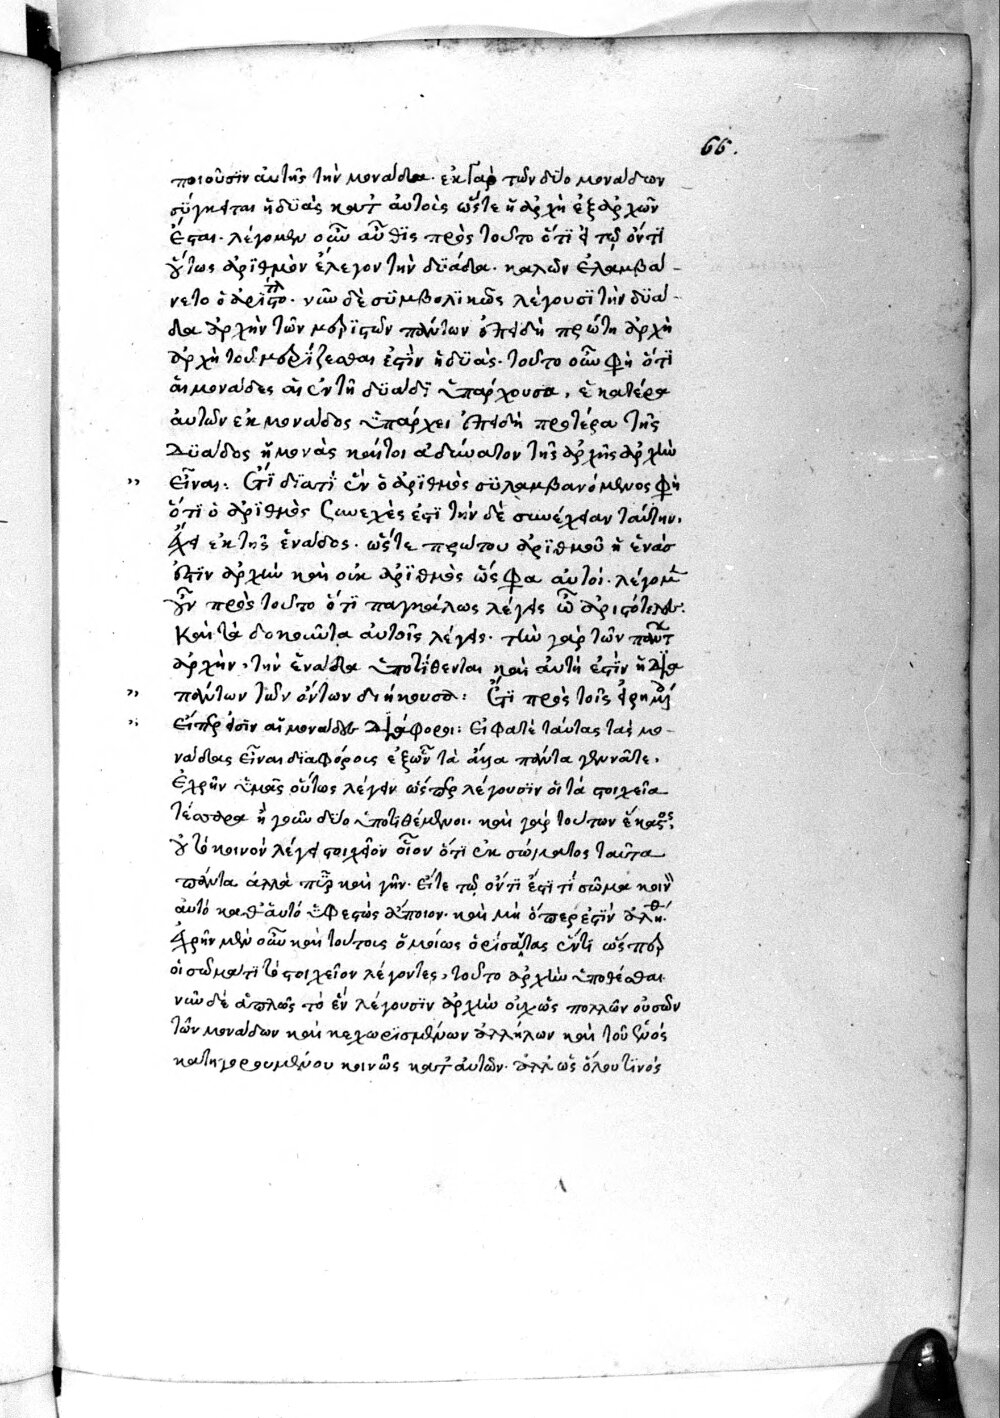 66.
ποιοῦσιν αυτῆς τὴν μονάδα. εκ γαρ των δύο μονάδων
σύγκειται ἡ δυὰς κατ αυτοὺς ὥστε ἡ ἀρχὴ ἐξ ἀρχῶν
ἔσται. λέγομεν οὖν αὖθις πρὸς τοῦτο ὅτι εἰ τῷ ὄντι
οὕτως ἀριθμὸν ἔλεγον τὴν δυάδα. καλῶν ἐλαμβά-
νετο ὁ ἀριστο. νῦν δὲ συμβολικῶς λέγουσι τὴν δυά-
δα ἀρχὴν τῶν μεριστῶν πάντων ἐπειδὴ πρώτη ἀρχὴ
ἀρχὴ τοῦ μερίζεσθαι ἐστὶν ἡ δυάς. τοῦτο οὖν φη ὅτι
αἱ μονάδες αἱ ἐν τῇ δυάδι ὑπάρχουσαι, ἑκατέρα
αυτῶν εκ μονάδος ὑπάρχει ἐπειδὴ προτέρα τῆς
δυάδος ἡ μονὰς καίτοι αδύνατον τῆς ἀρχῆς ἀρχὴν
εἶναι: Ἔτι διατί ἓν ὁ ἀριθμὸς συλαμβανόμενος φη
ὅτι ὁ ἀριθμὸς συνεχὲς ἐστι τὴν δὲ συνέχειαν ταύτην,
ἔχει εκ τῆς ἑνάδος. ὥστε πρώτου ἀριθμοῦ ἡ ἑνάς
ἐστιν ἀρχὴ καὶ οὐκ ἀριθμὸς ὥς φασιν αυτοί. λέγομεν
οὖν πρὸς τοῦτο ὅτι παγκάλως λέγεις ὦ ἀριστότελες.
καὶ τὰ δοκοῦντα αυτοῖς λέγεις. τὴν γὰρ τῶν πάντ
ἀρχὴν, τὴν ἑνάδα ὑποτίθενται καὶ αυτή ἐστιν ἡ διὰ
πάντων τῶν ὄντων διήκουσα: Ἔτι πρὸς τοῖς εἰρημέ
εἴπερ εἰσὶν αἱ μονάδες διάφοροι: Ει φατὲ ταύτας τὰς μο-
νάδας εἶναι διαφόρους ἐξ ὧν τὰ ἄλλα πάντα γεννᾶτε,
ἐχρῆν ὑμᾶς οὕτως λέγειν ὥσπερ λέγουσιν οἱ τὰ στοιχεῖα
τέσσαρα ἢ γοῦν δύο ὑποτιθέμενοι. καὶ γὰρ τούτων ἕκαστος,
οὐ τὸ κοινὸν λέγει στοιχεῖον οἷον ὅτι ἐκ σώματος ταῦτα
πάντα ἀλλὰ πῦρ καὶ γῆν. εἴτε τῷ ὄντι ἐστι τί σῶμα κοιν
αυτὸ καθ αυτὸ ὑφεστὼς ἄποιον. καὶ μὴ ὅπερ ἐστὶν ἀληθ.
χρῆν μὲν οὖν καὶ τούτους ὁμοίως ὁρίσαντας ἓν τι ὥσπερ
οἱ σῶμα τι τὸ στοιχεῖον λέγοντες, τοῦτο ἀρχὴν ὑποθέσθαι
νῦν δὲ ἁπλῶς τὸ ἓν λέγουσιν ἀρχὴν οὐχ ὡς πολλῶν οὐσῶν
τῶν μονάδων καὶ κεχωρισμένων ἀλλήλων καὶ τοῦ ἑνός
κατηγορουμένου κοινῶς κατ αυτῶν. ἀλλ ὡς ὅλου τινός